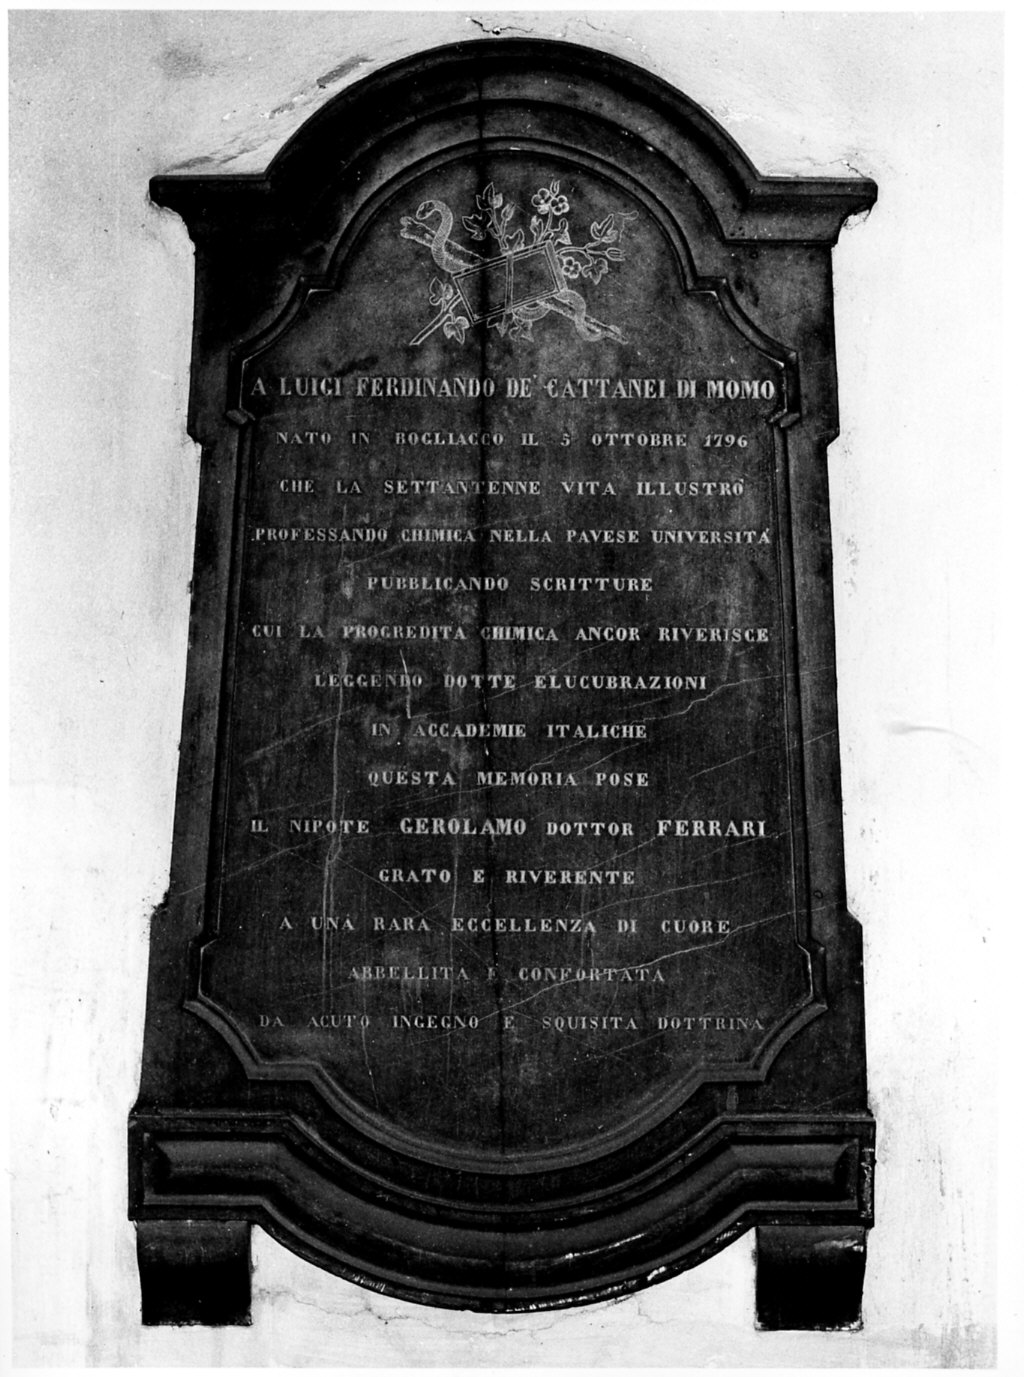 A LUIGI FERDINANDO DE' CATTANEI DI MOMO
NATO IN BOGLIACCO IL 5 OTTOBRE 1796
CHE LA SETTANTENNE VITA ILLUSTRÒ
PROFESSANDO CHIMICA NELLA PAVESE UNIVERSITÁ
PUBBLICANDO SCRITTURE
CUI LA PROGREDITA CHIMICA ANCOR RIVERISCE
LEGGENDO DOTTE ELUCUBRAZIONI
IN ACCADEMIE ITALICHE
QUESTA MEMORIA POSE
IL NIPOTE GEROLAMO DOTTOR FERRARI
GRATO E RIVERENTE
A UNA RARA ECCELLENZA DI CUORE
ABBELLITA E CONFORTATA
DA ACUTO INGEGNO E SQUISITA DOTTRINA